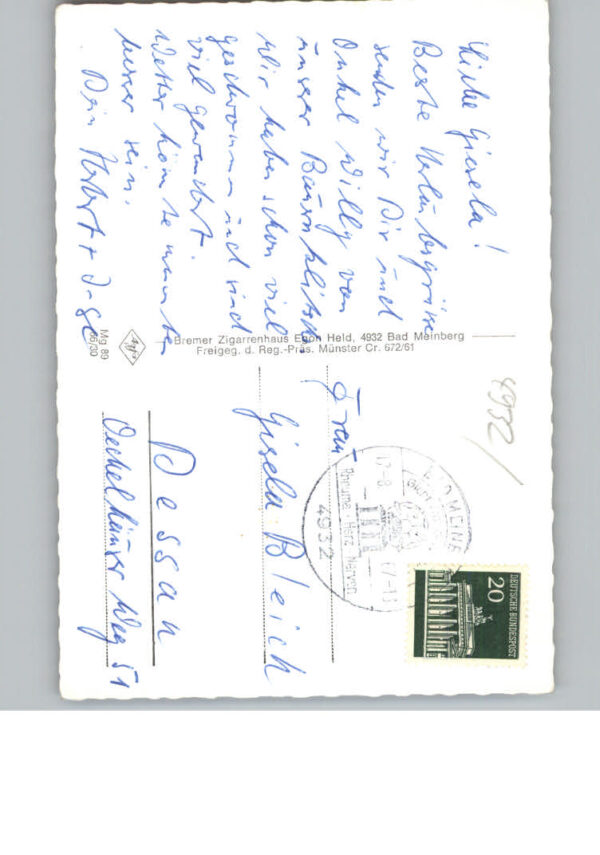 Liebe Gisela!
Beste Urlaubsgrüsse
senden wir Dir und
Onkel Willy von
unser
Wir haben schon viel
geschwommen und sind
viel gewandert.
Wetter könnte manchm
besser sein.
Dein Herbert + Inge
Bremer Zigarrenhaus Egon Held, 4932 Bad Meinberg
Freigeg. d. Reg.-Präs. Münster Cr. 672/61
Mg 89
66/30
Agfa
4932
Frau
Gisela Bleich
Dessau
Oechelhäuser Weg 51
BAD MEINBE
17-8
67-18
Rheuma · Herz Nerven
4932
20
DEUTSCHE BUNDESPOST